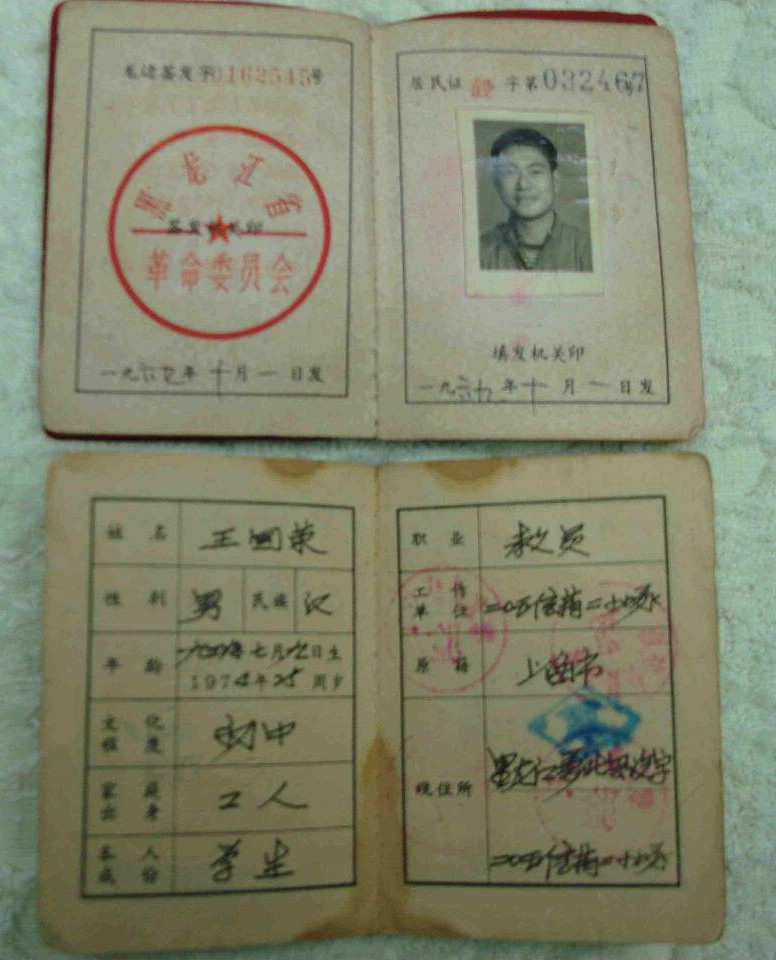 龙边签发字0162545号
黑龙江省
签发机关印
革命委员会
一九六九年十月一日发
居民证 字第032467号
填发机关印
一九六九年十月一日发
姓名 王国荣
性别 男 民族 汉
年龄 七月 日生
1974年25周岁
文化程度 初中
家庭出身 工人
本人成份 学生
职业 教员
工作单位 二〇五信箱二十四号
原籍 上海市
现住所 黑龙江
二〇五信箱二十四号